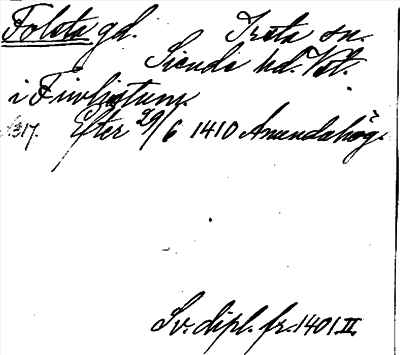 Folsta gd. Irsta sn.
Siende hd. Vstl.
i Finhastum.
1317. Efter 29/6 1410 Amundahög.
Sv. dipl. fr. 1401 II